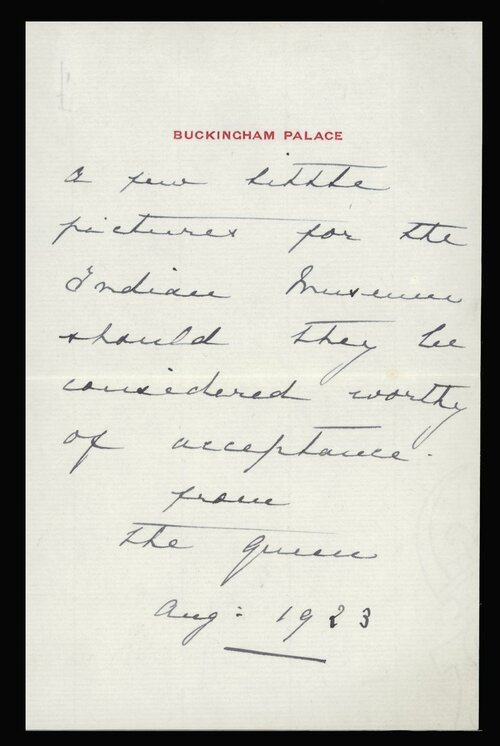 BUCKINGHAM PALACE
A few little
pictures for the
Indian Museum
should they be
considered worthy
of acceptance.
from
the Queen
Aug: 1923